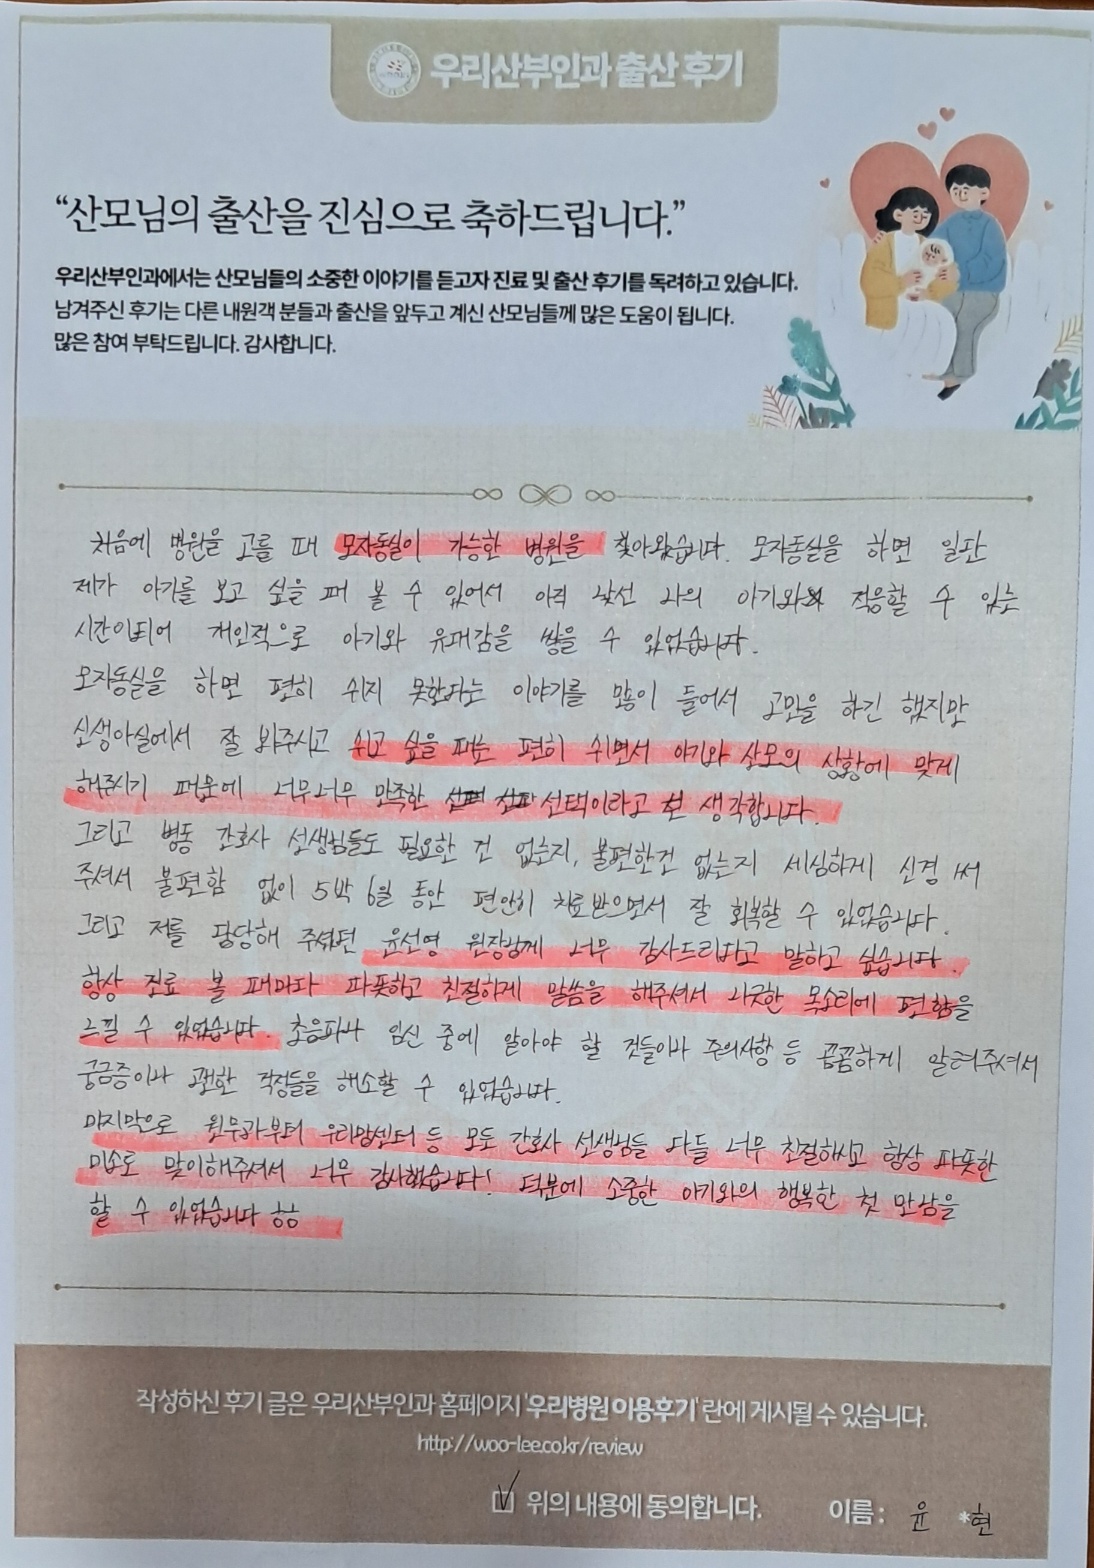 우리산부인과 출산 후기
“산모님의 출산을 진심으로 축하드립니다.”
우리산부인과에서는 산모님들의 소중한 이야기를 듣고자 진료 및 출산 후기를 독려하고 있습니다.
남겨주신 후기는 다른 내원객 분들과 출산을 앞두고 계신 산모님들께 많은 도움이 됩니다.
많은 참여 부탁드립니다. 감사합니다.
처음에 병원을 고를 때 모자동실이 가능한 병원을 찾아왔습니다. 모자동실을 하면 일단
제가 아기를 보고 싶을 때 볼 수 있어서 아직 낯선 나의 아기와 적응할 수 있는
시간이되어 개인적으로 아기와 유대감을 쌓을 수 있었습니다.
모자동실을 하면 편히 쉬지 못한다는 이야기를 많이 들어서 고민을 하긴 했지만
신생아실에서 잘 봐주시고 쉬고 싶을 때는 편히 쉬면서 아기와 산모의 상황에 맞게
해주시기 때문에 너무너무 만족한 선택이라고 전 생각합니다.
그리고 병동 간호사 선생님들도 필요한 건 없는지, 불편한건 없는지 세심하게 신경 써
주셔서 불편함 없이 5박 6일 동안 편안히 치료받으면서 잘 회복할 수 있었습니다.
그리고 저를 담당해 주셨던 윤선영 원장님께 너무 감사드린다고 말하고 싶습니다.
항상 진료 볼 때마다 따뜻하고 친절하게 말씀을 해주셔서 나긋한 목소리에 편함을
느낄 수 있었습니다. 초음파나 임신 중에 알아야 할 것들이나 주의사항 등 꼼꼼하게 알려주셔서
궁금증이나 괜한 걱정들을 해소할 수 있었습니다.
마지막으로 원무과부터 우리맘센터 등 모두 간호사 선생님들 다들 너무 친절하시고 항상 따뜻한
미소로 맞이해주셔서 너무 감사했습니다! 덕분에 소중한 아기와의 행복한 첫 만남을
할 수 있었습니다 ㅎㅎ
작성하신 후기 글은 우리산부인과 홈페이지 '우리병원 이용후기' 란에 게시될 수 있습니다.
http://woo-lee.co.kr/review
위의 내용에 동의합니다. 이름 : 윤 *현